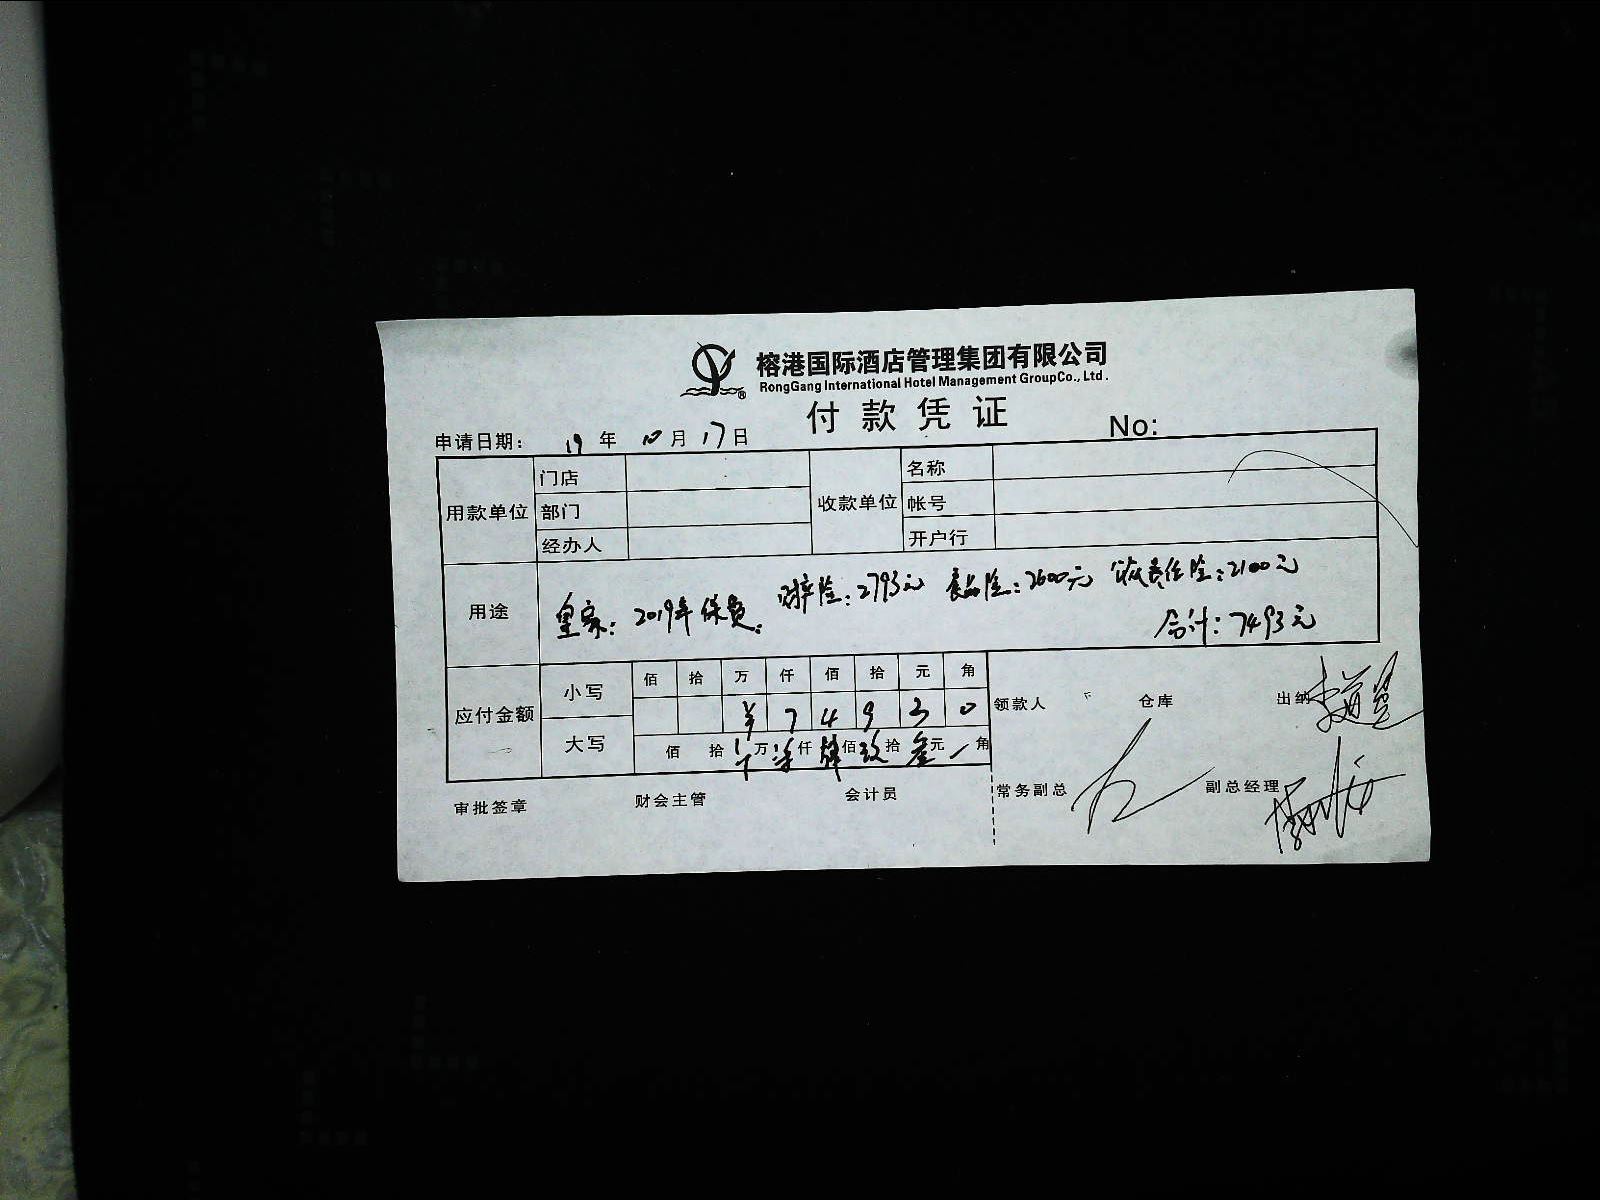 榕港国际酒店管理集团有限公司
RongGang International Hotel Management GroupCo., Ltd.
付款凭证
申请日期: 19 年 10 月 17 日 No:
用款单位 门店 收款单位 名称
部门 帐号
经办人 开户行
用途 皇家: 2019年保费: 财产险: 2793元 食品险: 2600元 公众责任险: 2100元
合计: 7493元
应付金额 小写 佰 拾 万 仟 佰 拾 元 角
¥ 7 4 9 3 0
大写 佰 拾 万 柒 仟 肆 佰 玖 拾 叁 元 角
领款人 仓库 出纳
常务副总 副总经理
审批签章 财会主管 会计员